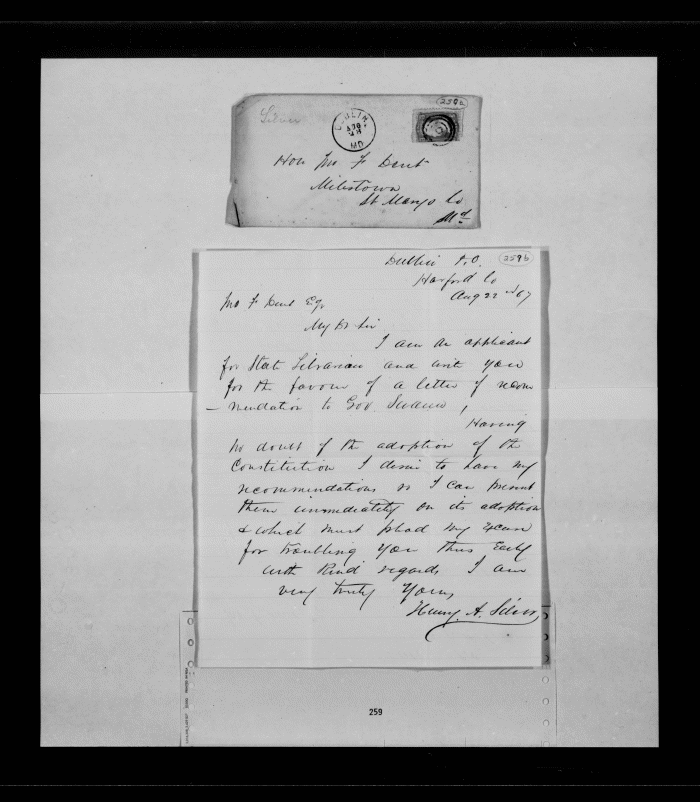 259a
Silver
DUBLIN,
MD.
Hon Jno F Dent
Milestown
St Marys Co
Md
259b
Dublin P.O.
Harford Co
Aug 22nd 67
Jno F Dent Esq
My Dr Sir
I am an applicant
for State Librarian and with you
for the favour of a letter of recom
- mendation to Gov. Swann,
Having
no doubt of the adoption of the
Constitution I desire to have my
recommendations so I can present
them immediately on its adoption
& which must plead my excuse
for troubling you thus Early
with Kind regards I am
very truly Yours
Henry A. Silver
259